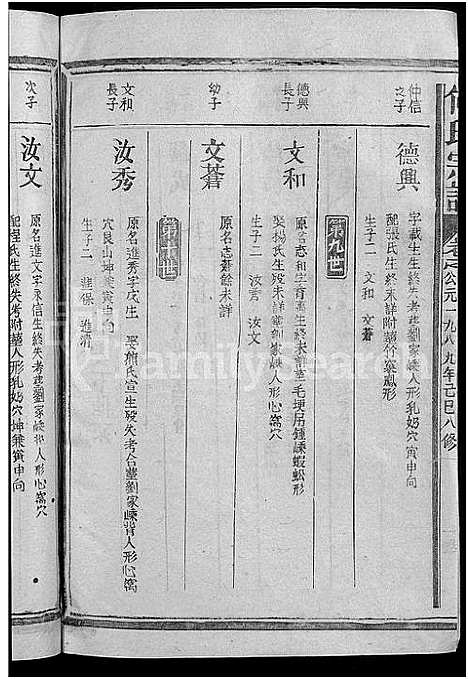 何氏宗譜
公元一九八九年己巳八修
仲信之子
德興
字載生生終失考葬劉家嵊人形乳奶穴寅申向
配張氏生終未詳附葬竹葉鳳形
生子二 文和 文蒼
第九世
德興長子
文和
原名志和字育萬生終未詳葬毛埂吊鍾嵊蝦蚣形
娶楊氏生歿未詳葬劉家嵊人形心窩穴
生子二 汝秀 汝文
幼子
文蒼
原名志蒼餘未詳
第十世
文和長子
汝秀
原名進秀字成生 娶熊氏宣生歿失考合葬劉家嵊背人形心窩
穴艮山坤兼寅申向
生子二 進保 進濟
次子
汝文
原名進文字永信生終失考葬劉家嵊人形心窩穴
配程氏生終失考附葬人形乳奶穴坤兼寅申向
FamilySearch